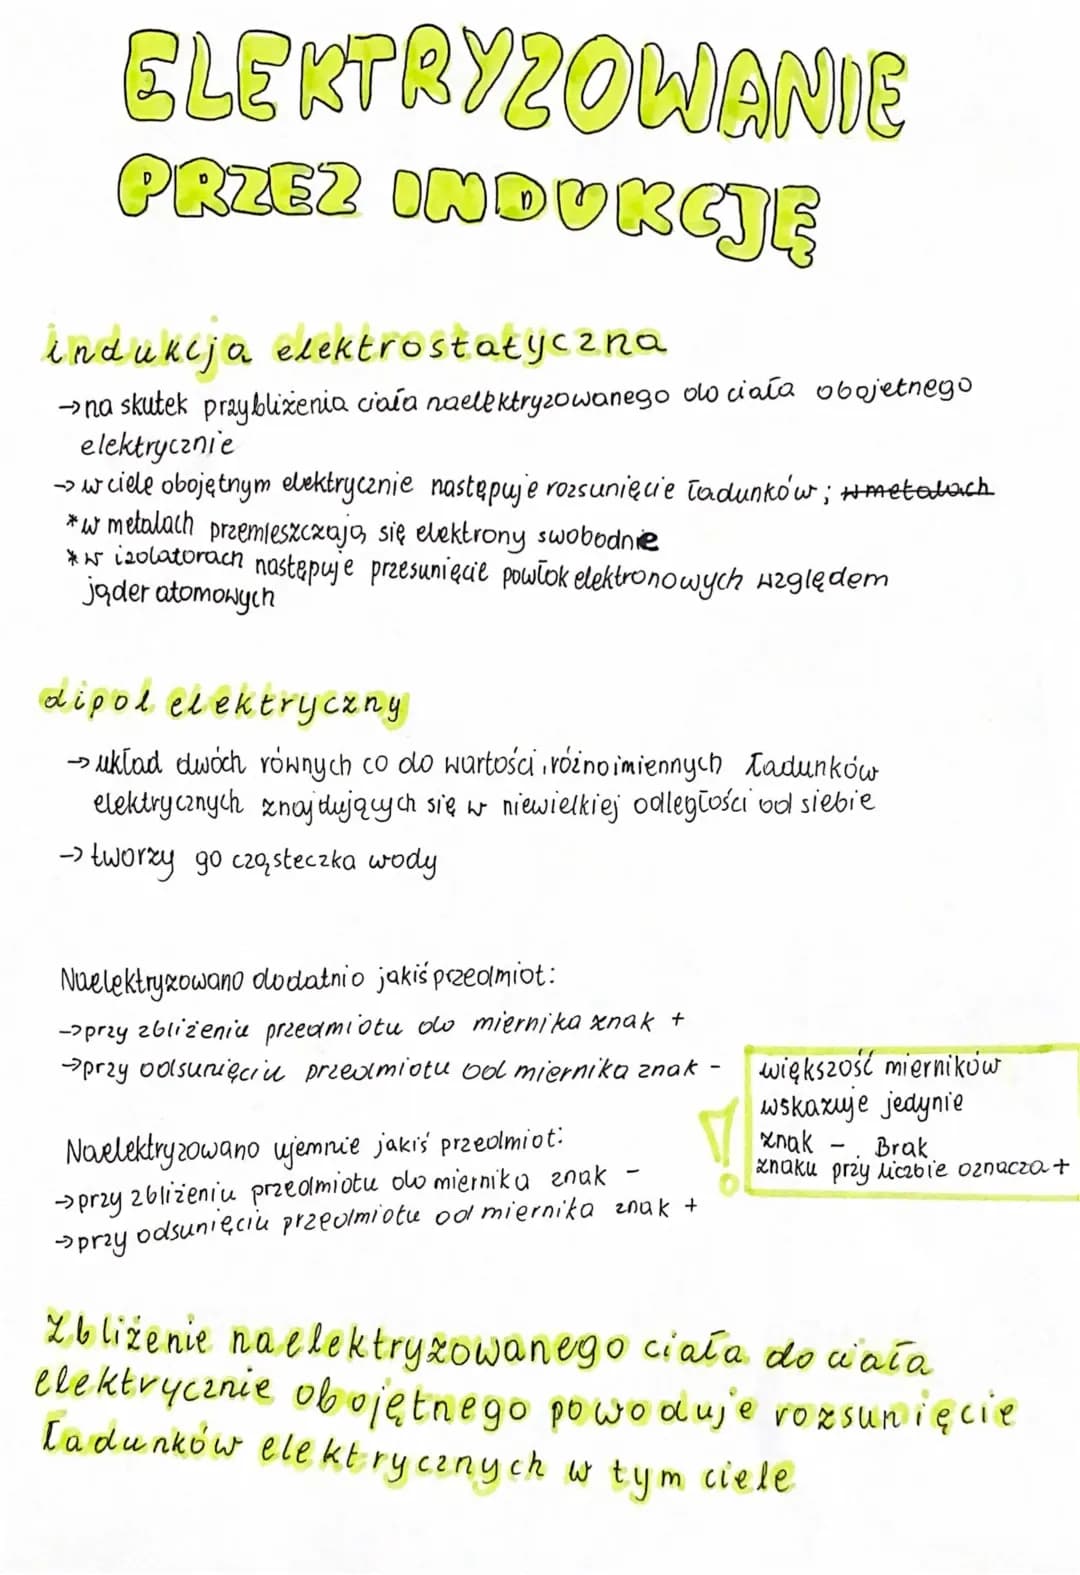 ELEKTRYZOWANIE
PRZEZ INDUKCJĘ
indukcja elektrostatyczna
→na skutek przybliżenia ciała naelektryzowanego do ciała obojetnego
elektrycznie
→ w ciele obojętnym elektrycznie następuje rozsunięcie ładunków; w metalach
*w metalach przemieszczają się elektrony swobodnie
*w izolatorach następuje przesunięcie powłok elektronowych względem
jąder atomowych
dipol elektryczny
→ układ dwóch równych co do wartości, różnoimiennych ładunków
elektrycznych znajdujących się w niewielkiej odległości od siebie
→ tworzy go cząsteczka wody
Naelektryzowano dodatnio jakiś przedmiot:
→przy zbliżeniu przedmiotu do miernika znak +
→przy odsunięciu przedmiotu od miernika znak -
większość mierników
wskazuje jedynie
znak - . Brak
znaku przy liczbie oznacza +
!
Naelektryzowano ujemnie jakiś przedmiot:
→przy zbliżeniu przedmiotu do miernika znak -
→przy odsunięciu przedmiotu od miernika znak +
Zbliżenie naelektryzowanego ciała do ciała
elektrycznie obojętnego powoduje rozsunięcie
ładunków elektrycznych w tym ciele